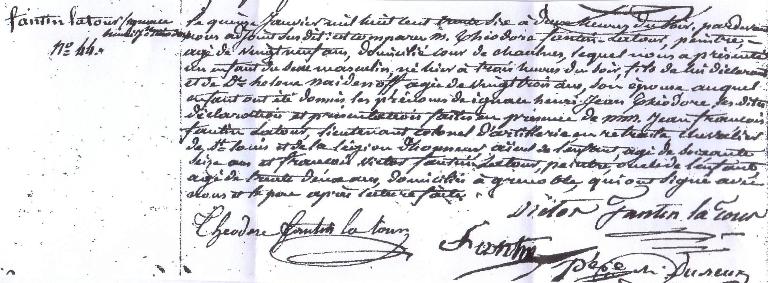 fantin latour ignace
henri jn théodore
n° 44.
Le quinze Janvier mil huit cent trente six à deux heures du soir, par devant
nous adjoint susdit: est comparu M. Théodore fantin Latour, peintre,
agé de vingt neuf ans, domicilié cour de chaulnes, lequel nous a présenté
un enfant du sexe masculin, né hier à trois heures du soir, fils de lui déclarant
et de De helene naidenoff agée de vingt trois ans, son épouse auquel
enfant ont été donnés les prénoms de ignace henri Jean Théodore, lesdites
déclaration et présentation faites en présence de mm. Jean francois
fantin Latour, lieutenant colonel d'artillerie en retraite chevalier
de St Louis et de la Légion d'honneur aïeul de l'enfant agé de soixante
seize ans et francois victor fantin Latour, peintre, oncle de l'enfant
agé de trente deux ans, domiciliés à grenoble, qui ont signé avec
nous et le pere après lecture faite.
Victor Fantin la Tour
Theodore fantin la tour
Fantin